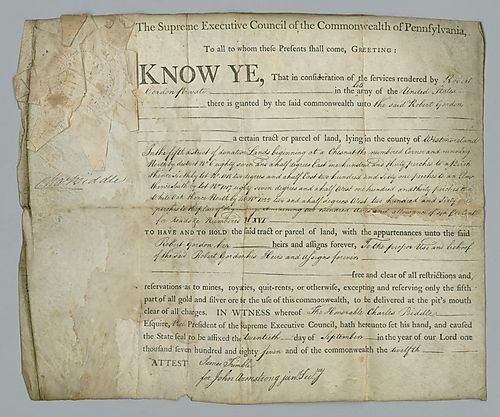 The Supreme Executive Council of the Commonwealth of Pennsylvania,
To all to whom these Presents shall come, GREETING:
KNOW YE, That in consideration of the services rendered by Robert
Gordon Private late in the army of the United States
there is granted by the said commonwealth unto the said Robert Gordon
a certain tract or parcel of land, lying in the county of Westmoreland
In the fifth district of donation Lands beginning at a Chesnut the numbered Corner and running
North by district No 6 eighty seven and a half degrees East one hundred and thirty perches to a Birch
thence South by lot No ten degrees and a half East two hundred and sixty one perches to an
thence South by lot No eighty seven degrees and a half West one hundred and thirty perches to a
White Oak thence North by lot No two and a half degrees West two hundred and sixty one
perches to the place of Beginning containing two hundred Acres and allowance of six Per Cent
for roads &c Numbered
TO HAVE AND TO HOLD the said tract or parcel of land, with the appurtenances unto the said
Robert Gordon his heirs and assigns forever, To the proper Use and behoof
of the said Robert Gordon his Heirs and Assigns forever
free and clear of all restrictions and,
reservations as to mines, royalties, quit-rents, or otherwise, excepting and reserving only the fifth
part of all gold and silver ore for the use of this commonwealth, to be delivered at the pit's mouth
clear of all charges. IN WITNESS whereof The Honorable Charles Biddle
Esquire, Vice President of the Supreme Executive Council, hath hereunto set his hand, and caused
the State seal to be affixed the twentieth day of September in the year of our Lord one
thousand seven hundred and eighty seven and of the commonwealth the twelfth
ATTEST James Trimble
for John Armstrong junr Secy
Chas Biddle